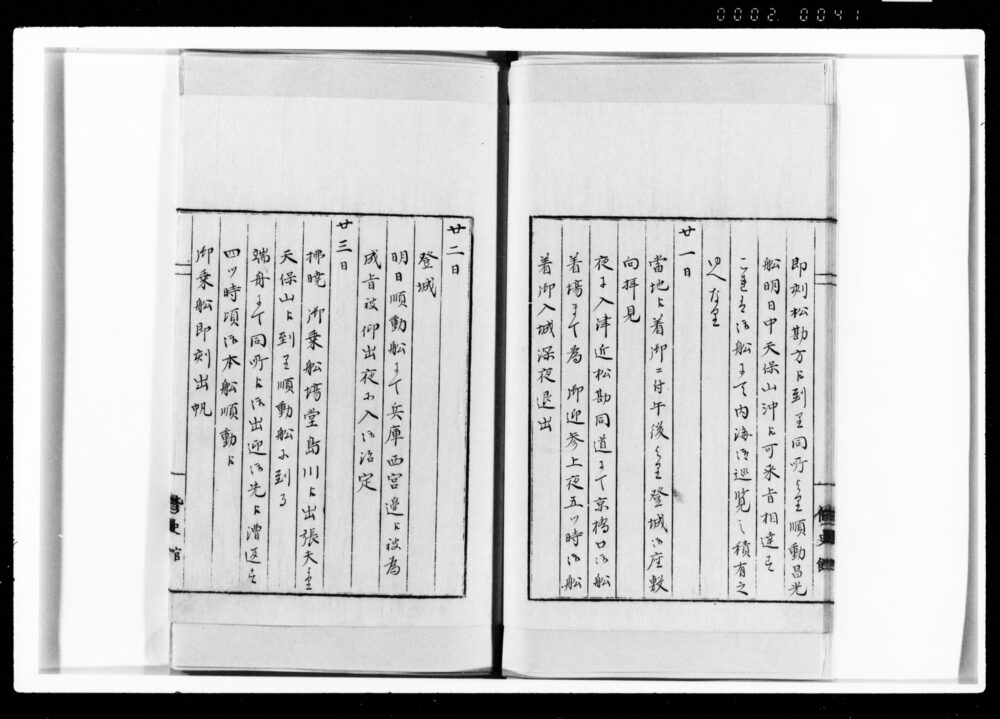 0002 0041
即刻松勘方に到り同所より順動昌光
船明日中天保山沖に可来旨相達す
これは御船にて内海御巡覧之積有之
ゆへなり
廿一日
當地に着御ニ付午後より登城御座敷
向拝見
夜に入津近松勘同道にて京橋口御船
着場にて為 御迎参上夜五ツ時御船
着御入城深夜退出
廿二日
登城
明日順動船にて兵庫西宮邊に被為
成旨被 仰出夜に入御治定
廿三日
拂曉 御乗船場堂島川に出張夫より
天保山に到り順動船に到る
端舟にて同所に御出迎御先に漕返す
四ツ時頃御本船順動に
御乗船即刻出帆